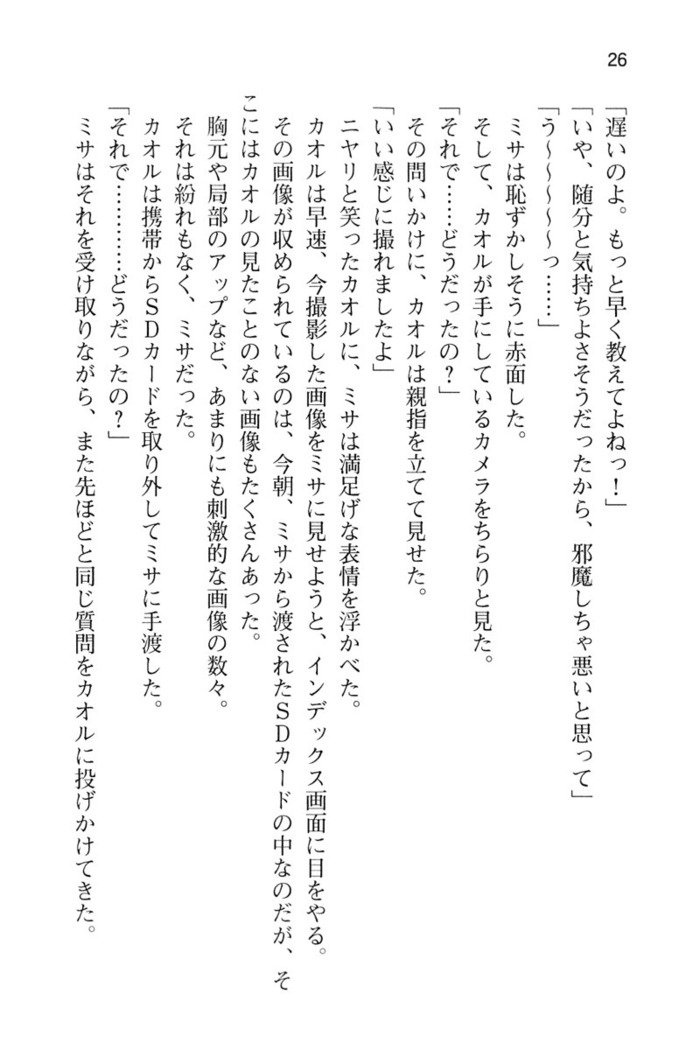 26
「遅いのよ。もっと早く教えてよねっ！」
「いや、随分と気持ちよさそうだったから、邪魔しちゃ悪いと思って」
「う～～～～～っ……」
ミサは恥ずかしそうに赤面した。
そして、カオルが手にしているカメラをちらりと見た。
「それで……どうだったの？」
その問いかけに、カオルは親指を立てて見せた。
「いい感じに撮れましたよ」
ニヤリと笑ったカオルに、ミサは満足げな表情を浮かべた。
カオルは早速、今撮影した画像をミサに見せようと、インデックス画面に目をやる。
その画像が収められているのは、今朝、ミサから渡されたＳＤカードの中なのだが、そ
こにはカオルの見たことのない画像もたくさんあった。
胸元や局部のアップなど、あまりにも刺激的な画像の数々。
それは紛れもなく、ミサだった。
カオルは携帯からＳＤカードを取り外してミサに手渡した。
「それで…………どうだったの？」
ミサはそれを受け取りながら、また先ほどと同じ質問をカオルに投げかけてきた。